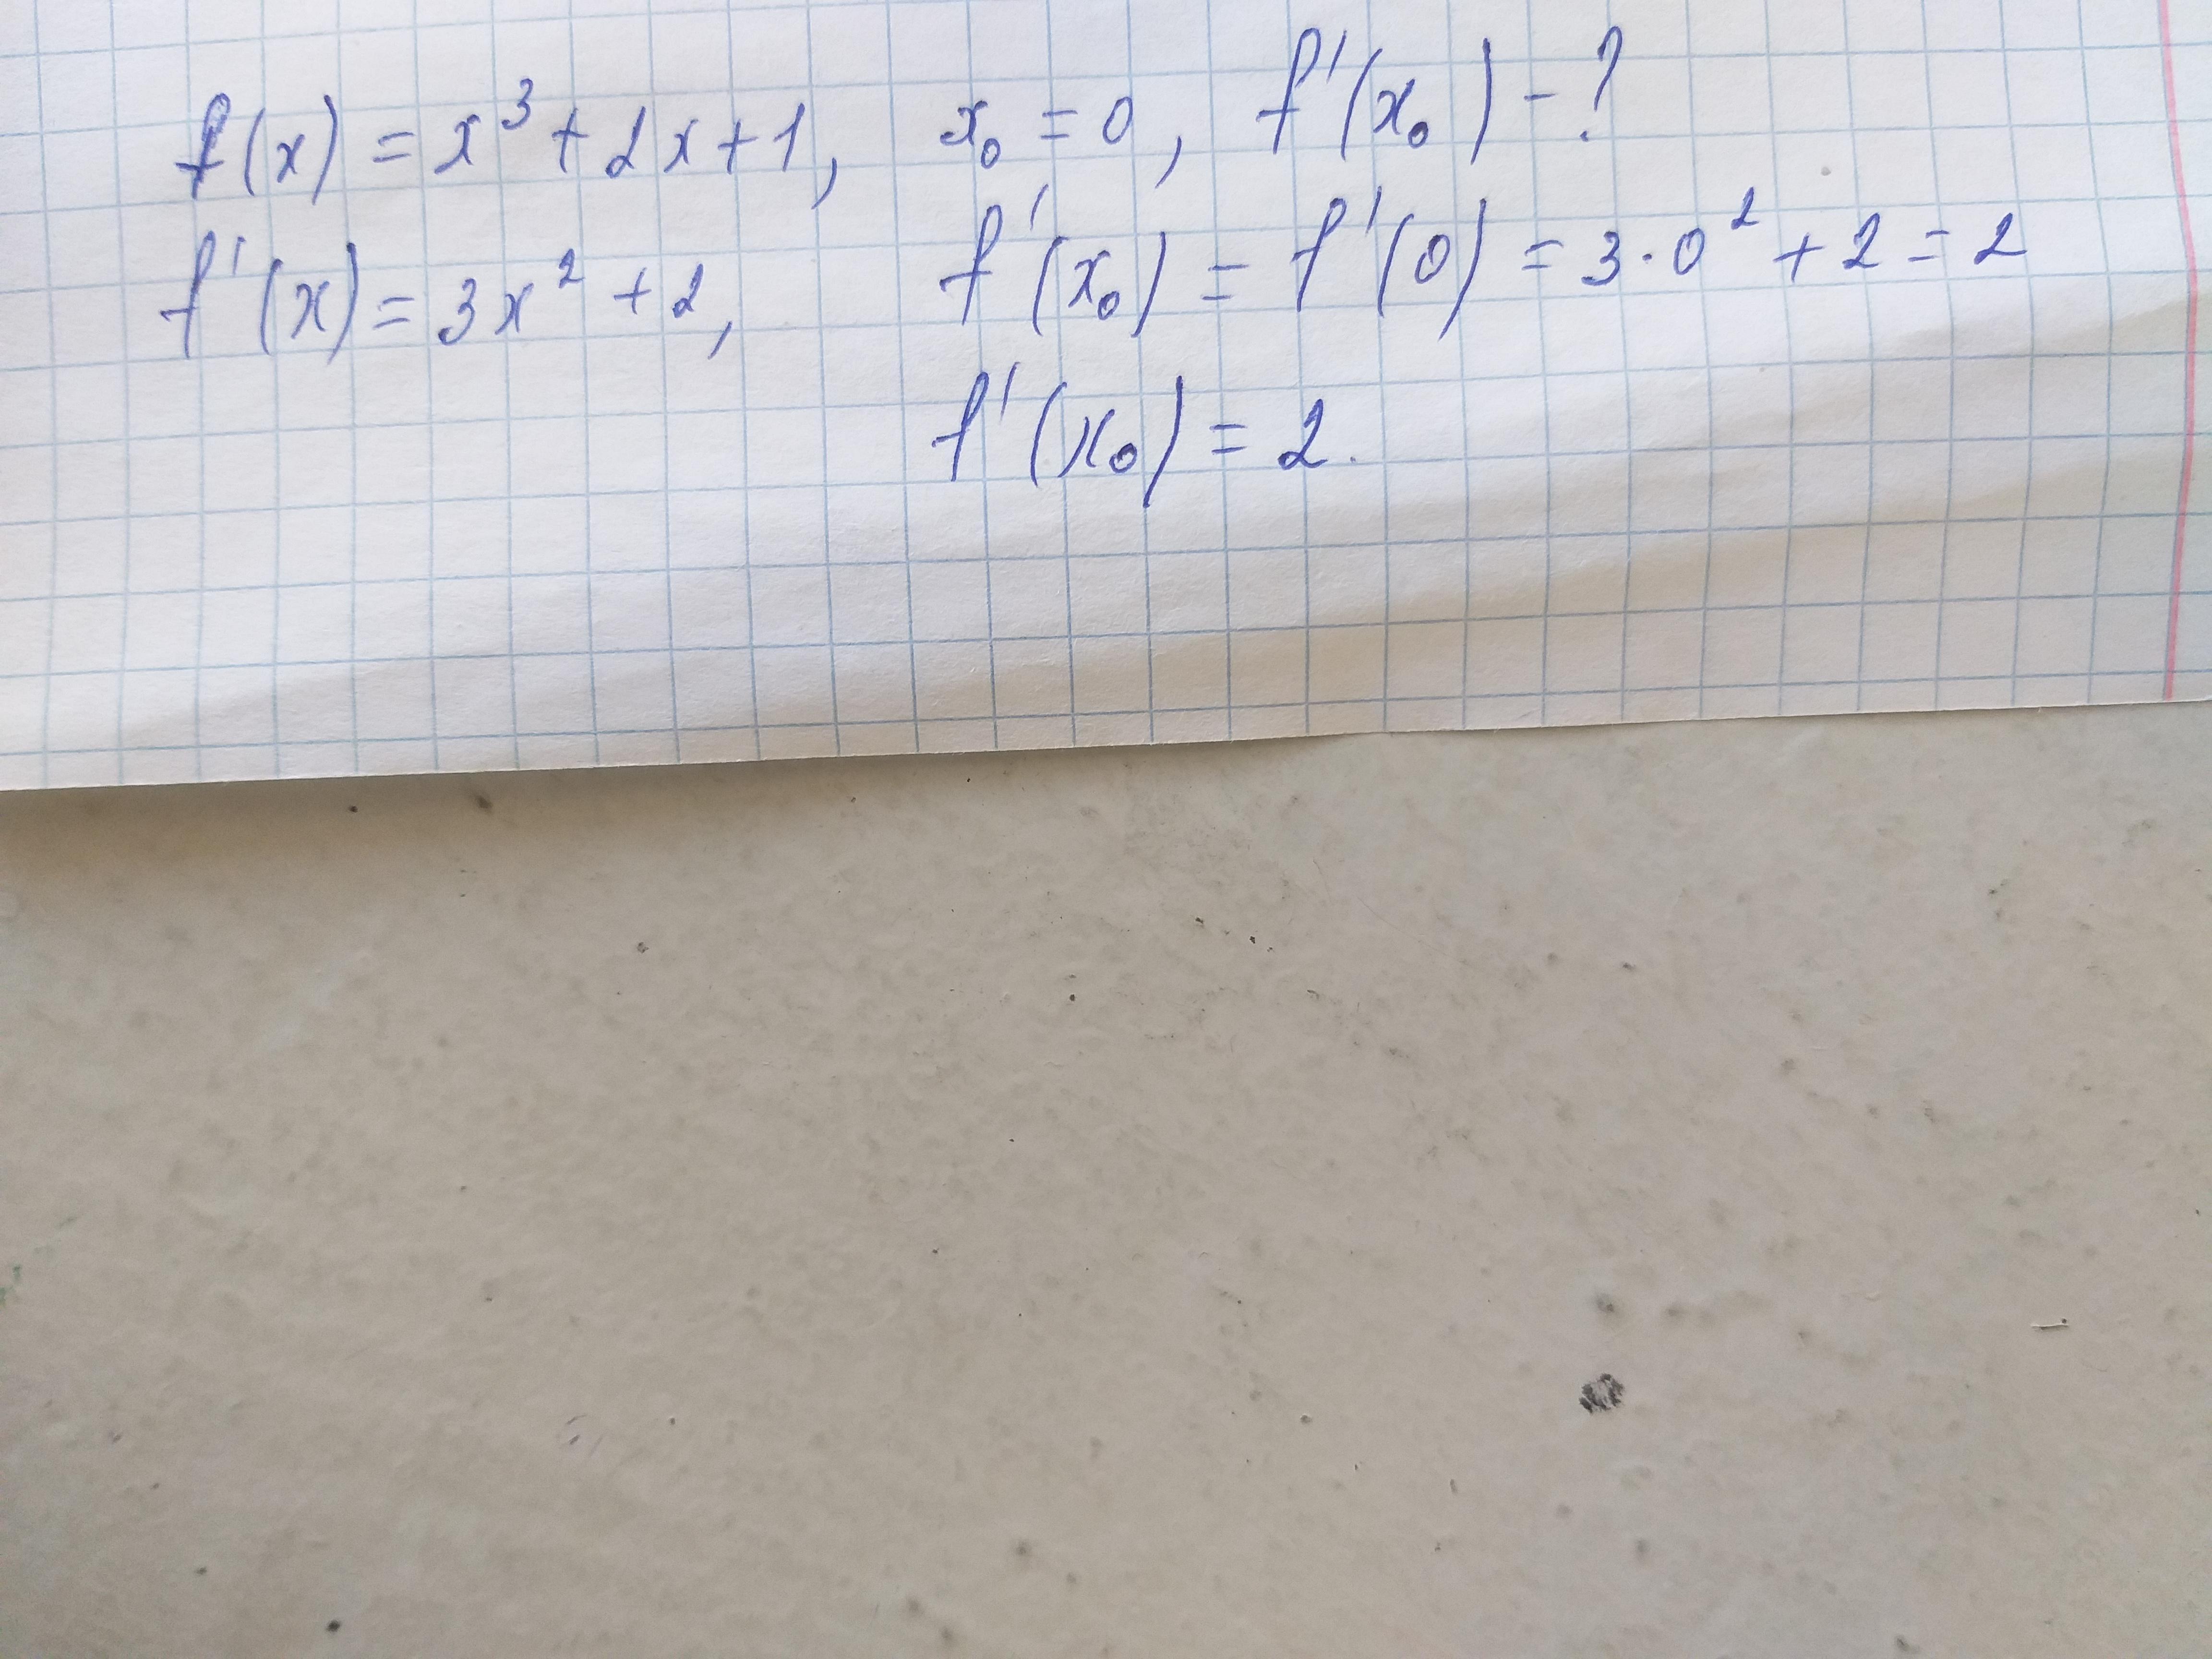 f(x) = x³ + 2x + 1, x₀ = 0, f'(x₀) - ?
f'(x) = 3x² + 2, f'(x₀) = f'(0) = 3·0² + 2 = 2
f'(x₀) = 2.